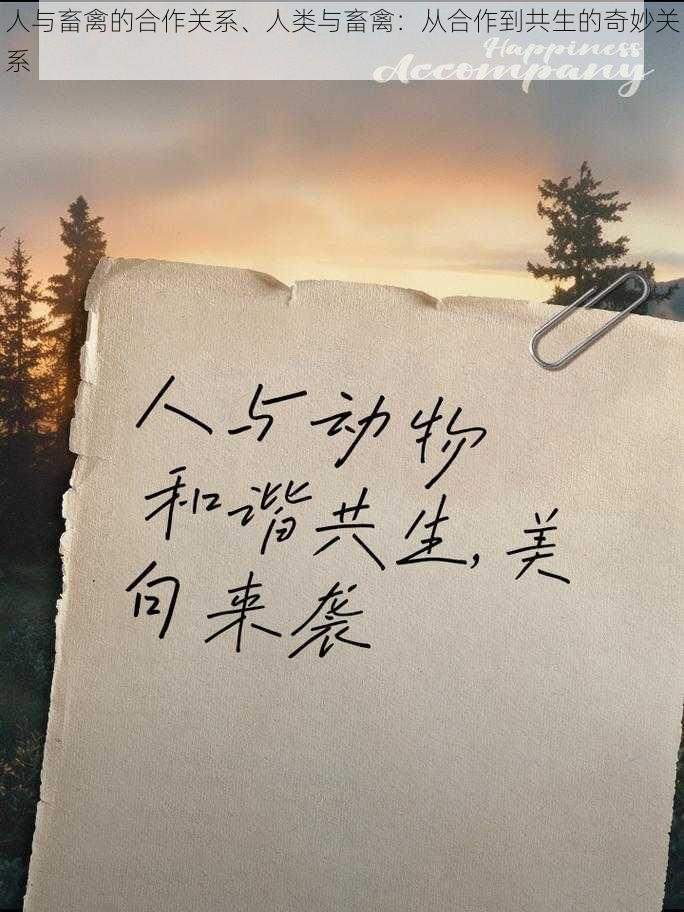 人与畜禽的合作关系、人类与畜禽：从合作到共生的奇妙关
系
Happiness
Accompany
人与动物
和谐共生,美
句来袭